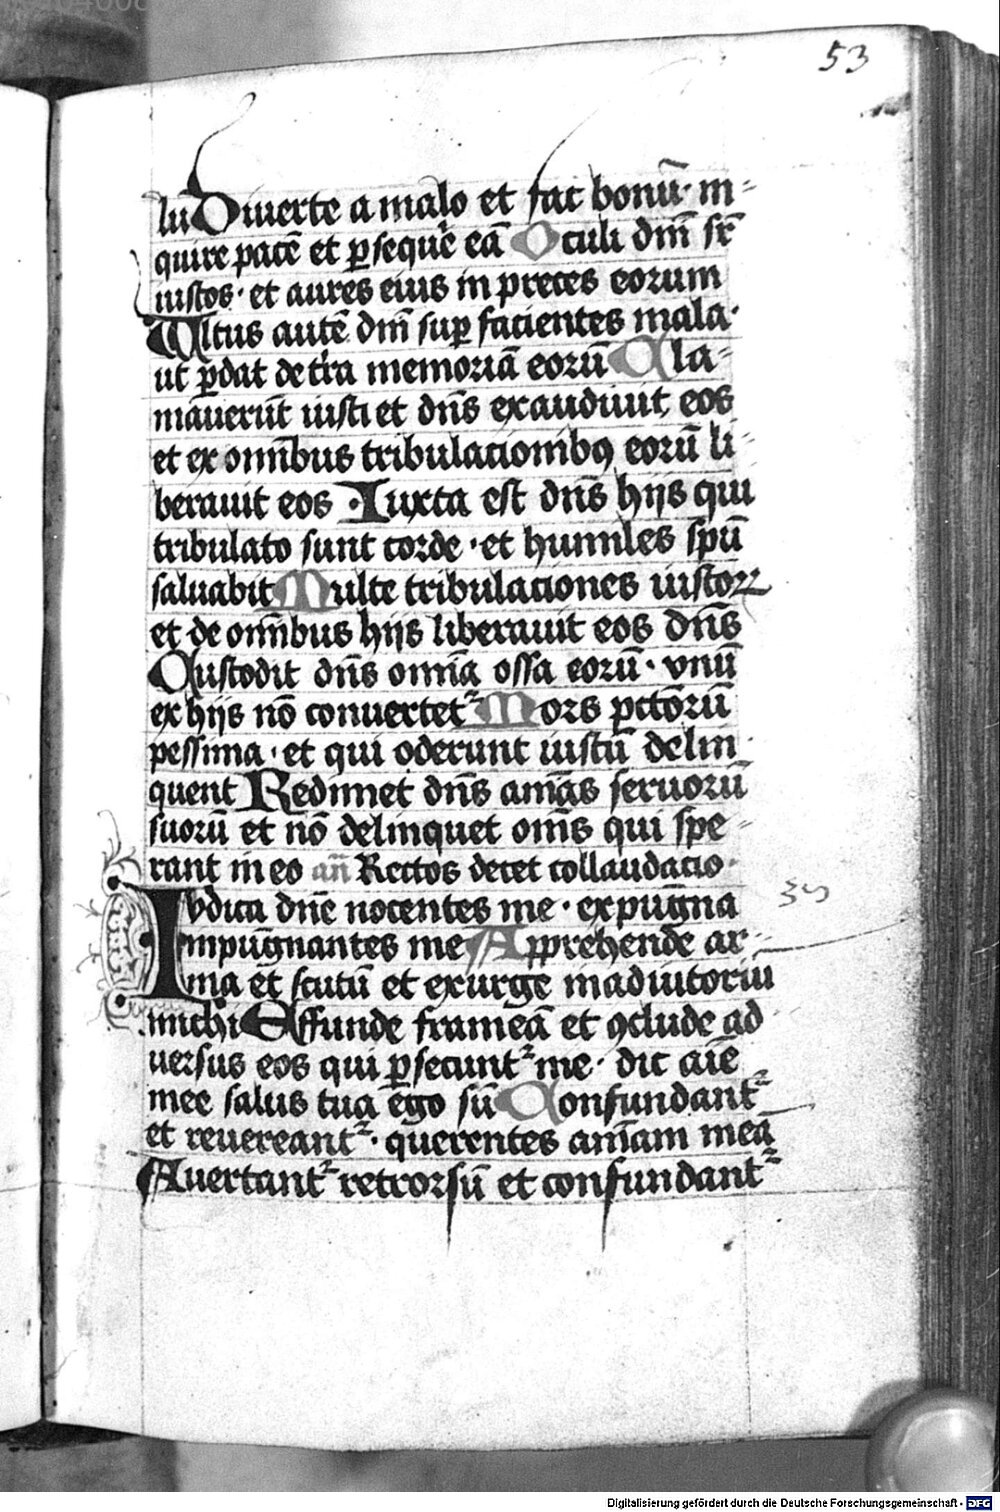 53
lū Diuerte a malo et fac bonū· in-
quire pacē et ꝑsequer̄e eā Oculi dn̄i sr̄
iustos· et aures eius in preces eorum
Ultus autē dn̄i suꝑ facientes mala·
ut ꝑdat de t̄ra memoriā eorū Cla-
mauerūt iusti et dn̄s exaudiuit eos
et ex om̄ibus tribulacionibꝯ eorū li-
berauit eos Iuxta est dn̄s hijs qui
tribulato sunt corde· et humiles spū
saluabit Multe tribulaciones iustoꝝ
et de om̄ibus hijs liberauit eos dn̄s
Custodit dn̄s om̄ia ossa eorū· vnū
ex hijs nō conuertet᷑ Mors pctōrū
pessima· et qui oderunt iustū delin-
quent Redimet dn̄s aīas seruorū
suorū et nō delinquet om̄s qui spe-
rant in eo an̄ Rectos decet collaudacio·
Iudica dn̄e nocentes me· expugna
impugnantes me Apprehende ar-
ma et scutū et exurge in adiutoriū
michi Effunde frameā et ꝯclude ad
uersus eos qui ꝑsecunt᷑ me· dic aīe
mee salus tua ego sū Confundant᷑
et reuereant᷑· querentes animam meā
Auertant᷑ retrorsū et confundant᷑
Digitalisierung gefördert durch die Deutsche Forschungsgemeinschaft - DFG